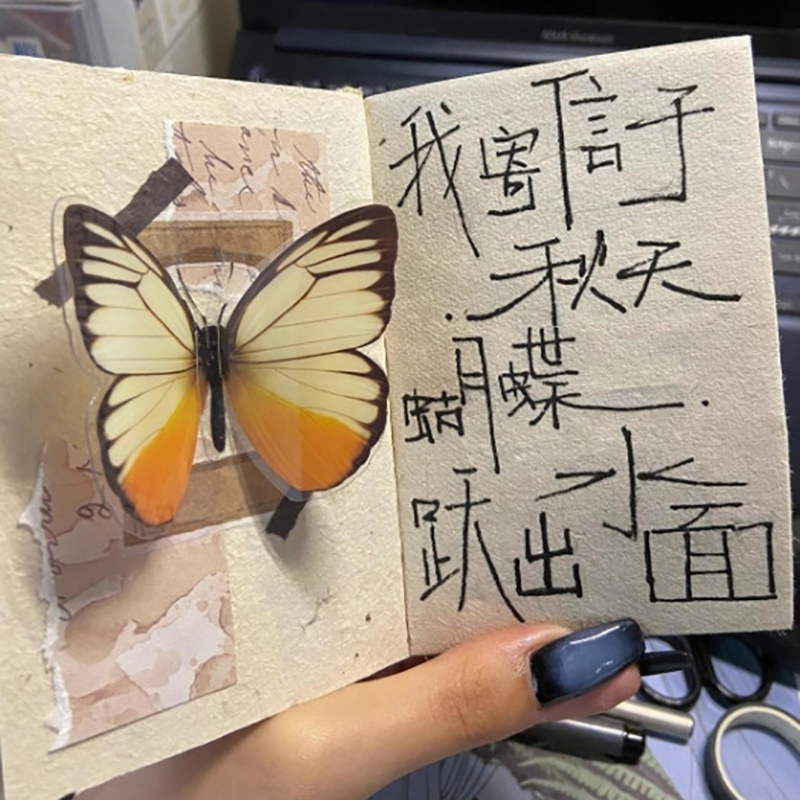 我寄信于
秋天
蝴蝶
跃出水面